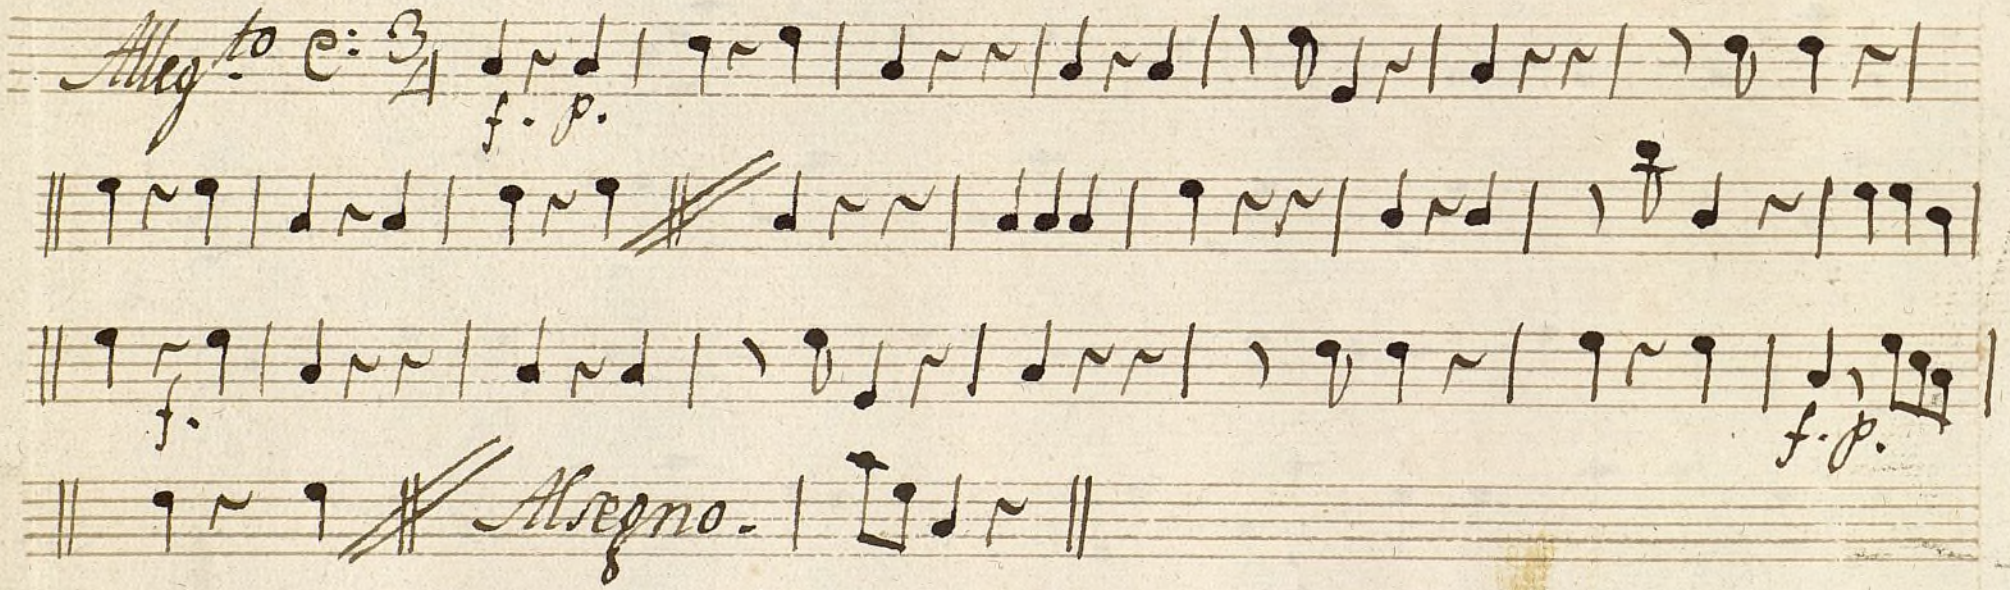 Alleg.to 3/4
f. p.
f.
f. p.
Alsegno.